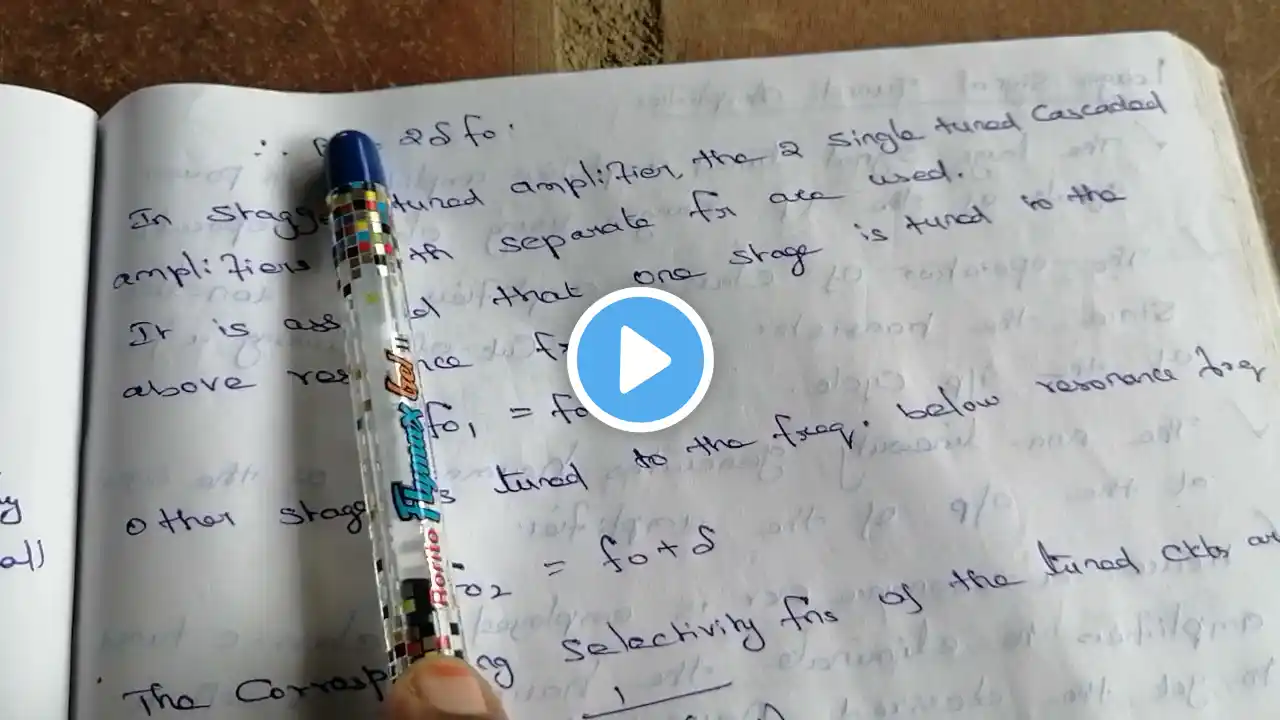 ∴ 2δfo.
In stagge tuned amplifier, the 2 single tuned cascaded
amplifiers th separate fr are used.
It is ass d that one stage is tuned to the
above res nce fr
fo1 = fo
other stage is tuned to the freq. below resonance freq
o2 = fo + δ
The Corresp ng selectivity fns of the tuned ckts are
1
y
al)
Rorito Flymax bol